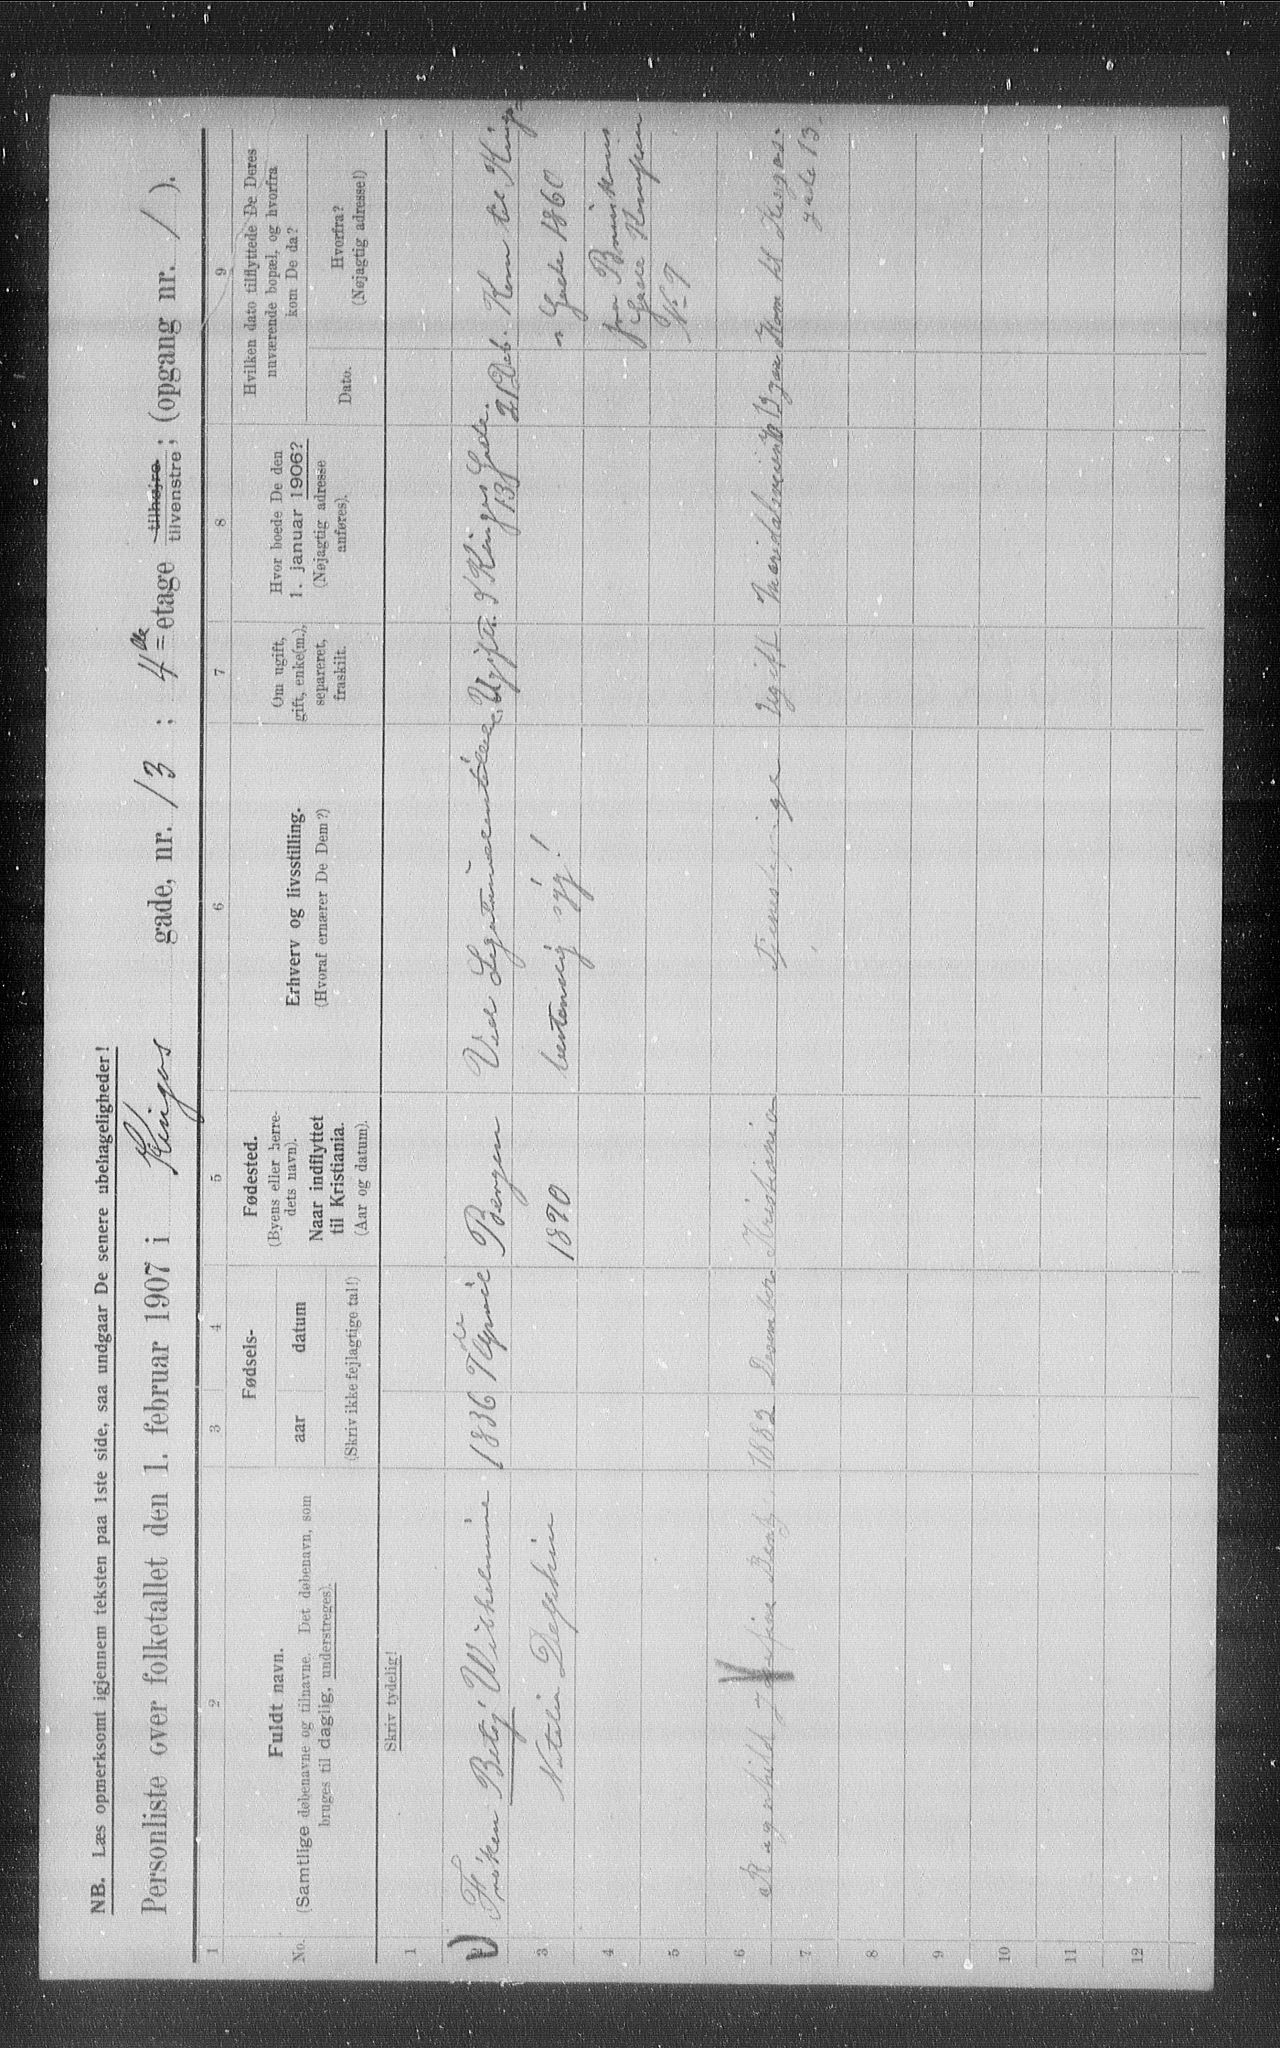 NB. Læs opmerksomt igjennem teksten paa 1ste side, saa undgaar De senere ubehageligheder!
Personliste over folketallet den 1. februar 1907 i Kingos gade, nr. 13 ; 4de etage tilhøjre tilvenstre ; (opgang nr. 1 ).
1 2 3 4 5 6 7 8 9
No.
Fuldt navn.
(Samtlige døbenavne og tilnavne. Det døbenavn, som
bruges til daglig, understreges).
Fødsels-
aar datum
(Skriv ikke fejlagtige tal!)
Fødested.
(Byens eller herre-
dets navn).
Naar indflyttet
til Kristiania.
(Aar og datum).
Erhverv og livsstilling.
(Hvoraf ernærer De Dem?)
Om ugift,
gift, enke(m.),
separeret,
fraskilt.
Hvor boede De den
1. januar 1906?
(Nøjagtig adresse
anføres).
Hvilken dato tilflyttede De Deres
nuværende bopæl, og hvorfra
kom De da?
Dato.
Hvorfra?
(Nøjagtig adresse!)
Skriv tydelig!
1
2 Frøken Betzy Wilhelmine 1836 7de April Bergen Ved Ugift. I Kingos Gade. 13 21 Kom til
3 Natalia 1890 syg! Gade 1860
4 fra
5 No 7
6 Ragnhild 1882 Desember Kristiania Ugift Maridalsveien Kom til Kingos.
7 gade 13.
8
9
10
11
12